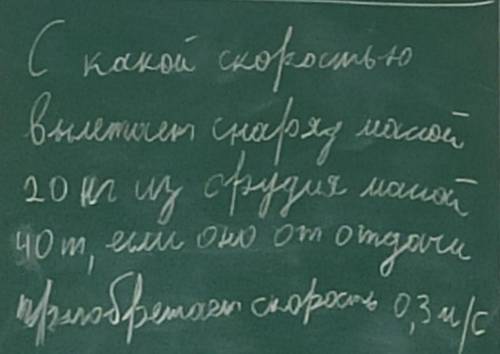 С какой скоростью
вылетает снаряд массой
20 кг из орудия массой
40т, если оно от отдачи
приобретает скорость 0,3 м/с